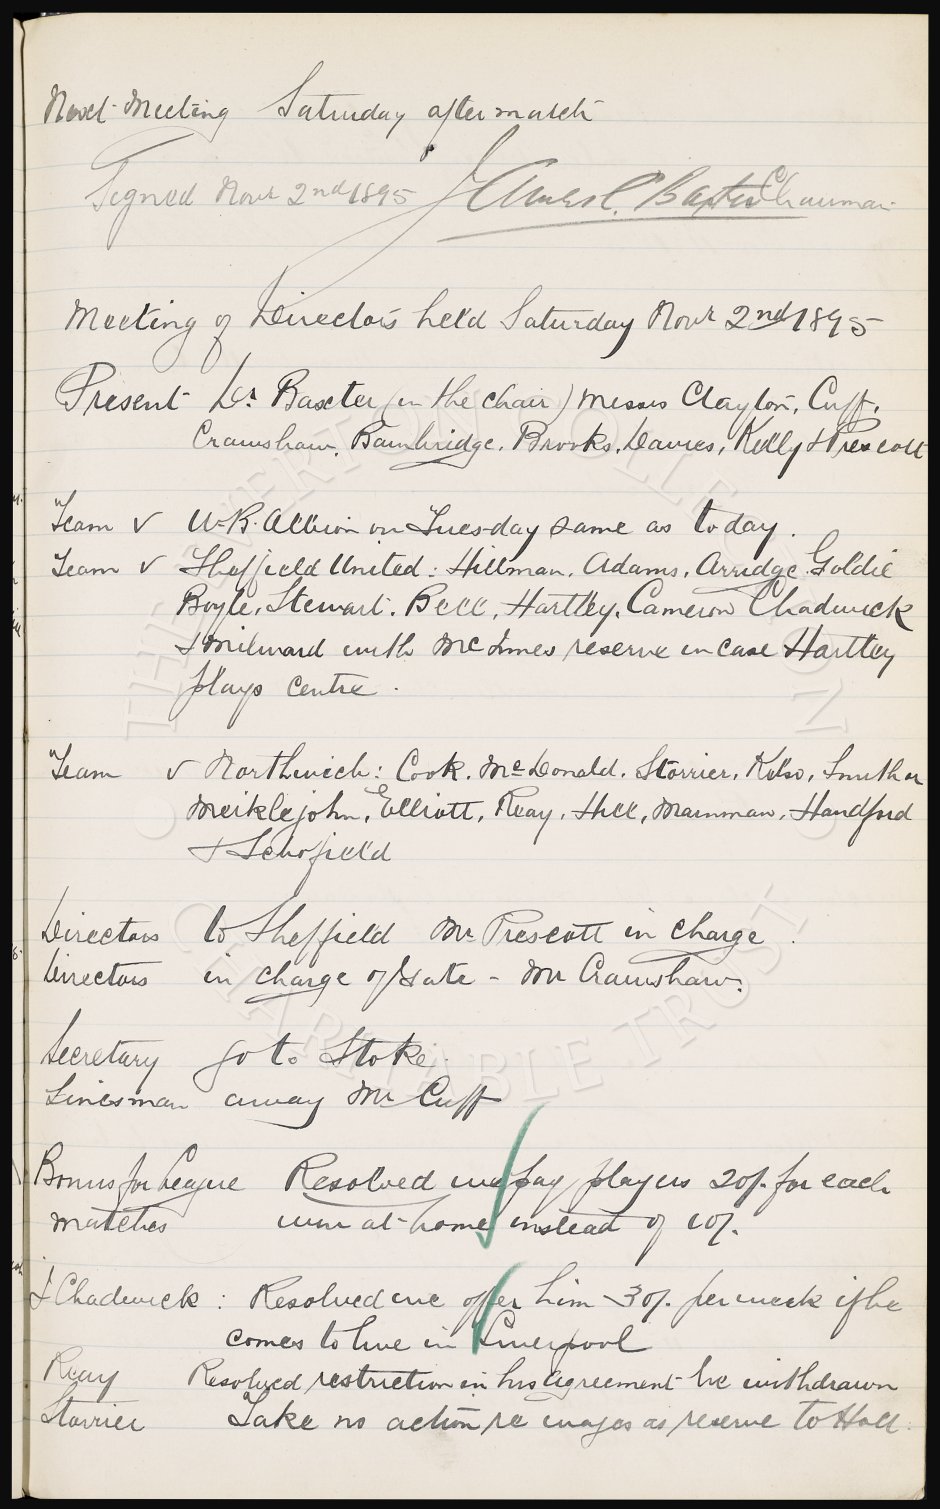 Next Meeting Saturday after match
Signed Novr 2nd 1895 James C. Baxter Chairman
Meeting of Directors held Saturday Novr 2nd 1895
Present Dr. Baxter (in the chair) Messrs Clayton, Cuff,
Crawshaw, Bainbridge, Brooks, Davies, Kelly & Prescott
Team v W.B. Albion on Tuesday same as today.
Team v Sheffield United: Hillman, Adams, Arridge, Goldie
Boyle, Stewart, Bell, Hartley, Cameron Chadwick
& Milward with McInnes reserve in case Hartley
plays centre.
Team v Northwich: Cook, McDonald, Storrier, Kelso, Smith or
Meiklejohn, Elliott, Reay, Hill, Mainman, Handford
& Schofield
Directors to Sheffield Mr Prescott in charge.
Directors in charge of Gate - Mr Crawshaw.
Secretary go to Stoke.
Linesman away Mr Cuff
Bonus for League Resolved we pay players 20/- for each
matches win at home instead of 10/-.
J Chadwick: Resolved we offer him 30/- per week if he
comes to live in Liverpool
Reay Resolved restriction in his agreement be withdrawn
Storrier Take no action re wages as reserve to Holt.
THE EVERTON COLLECTION
CHARITABLE TRUST